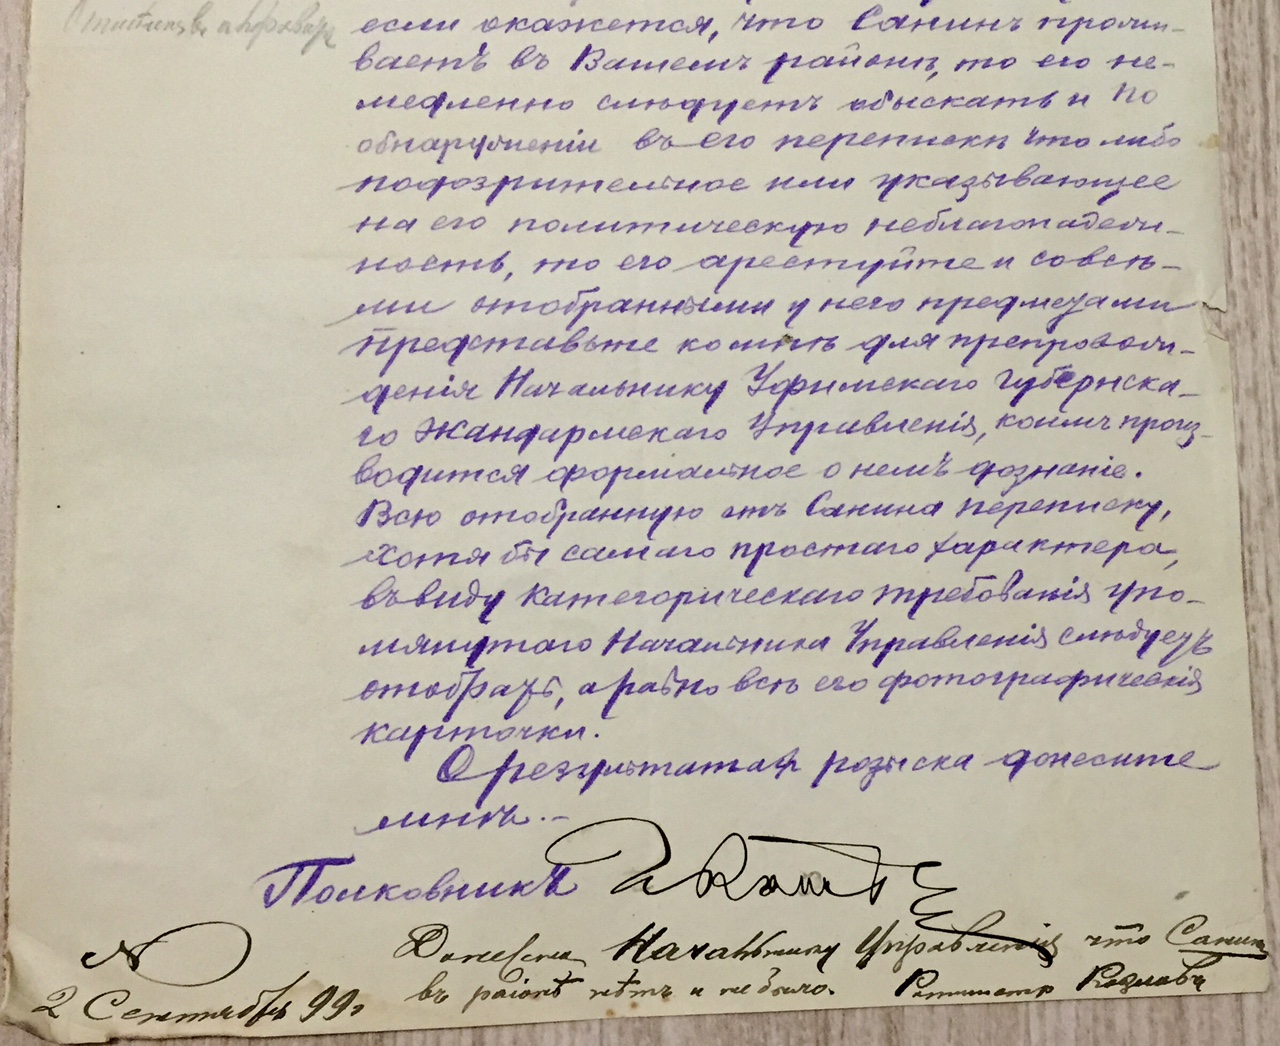 если окажется, что Санинъ прожи-
ваетъ въ Вашемъ районѣ, то его не-
медленно слѣдуетъ обыскать и по
обнаруженіи въ его перепискѣ что либо
подозрительное или указывающее
на его политическую неблагонадеж-
ность, то его арестуйте и со всѣ-
ми отобранными у него предметами
представьте ко мнѣ для препровож-
денія Начальнику Уфимскаго Губернска-
го Жандармскаго Управленія, коимъ произ-
водится формальное о немъ дознаніе.
Всю отобранную отъ Санина переписку,
хотя бы самаго простаго характера,
въ виду категорическаго требованія упо-
мянутаго Начальника Управленія слѣдуетъ
отобрать, а равно всѣ его фотографическія
карточки.
О результатахъ розыска донесите
мнѣ.-
Полковникъ
Донесено Начальнику Управленія что Санина
въ районѣ нѣтъ и не было. Ротмистр Козловъ
2 Сентября 99г